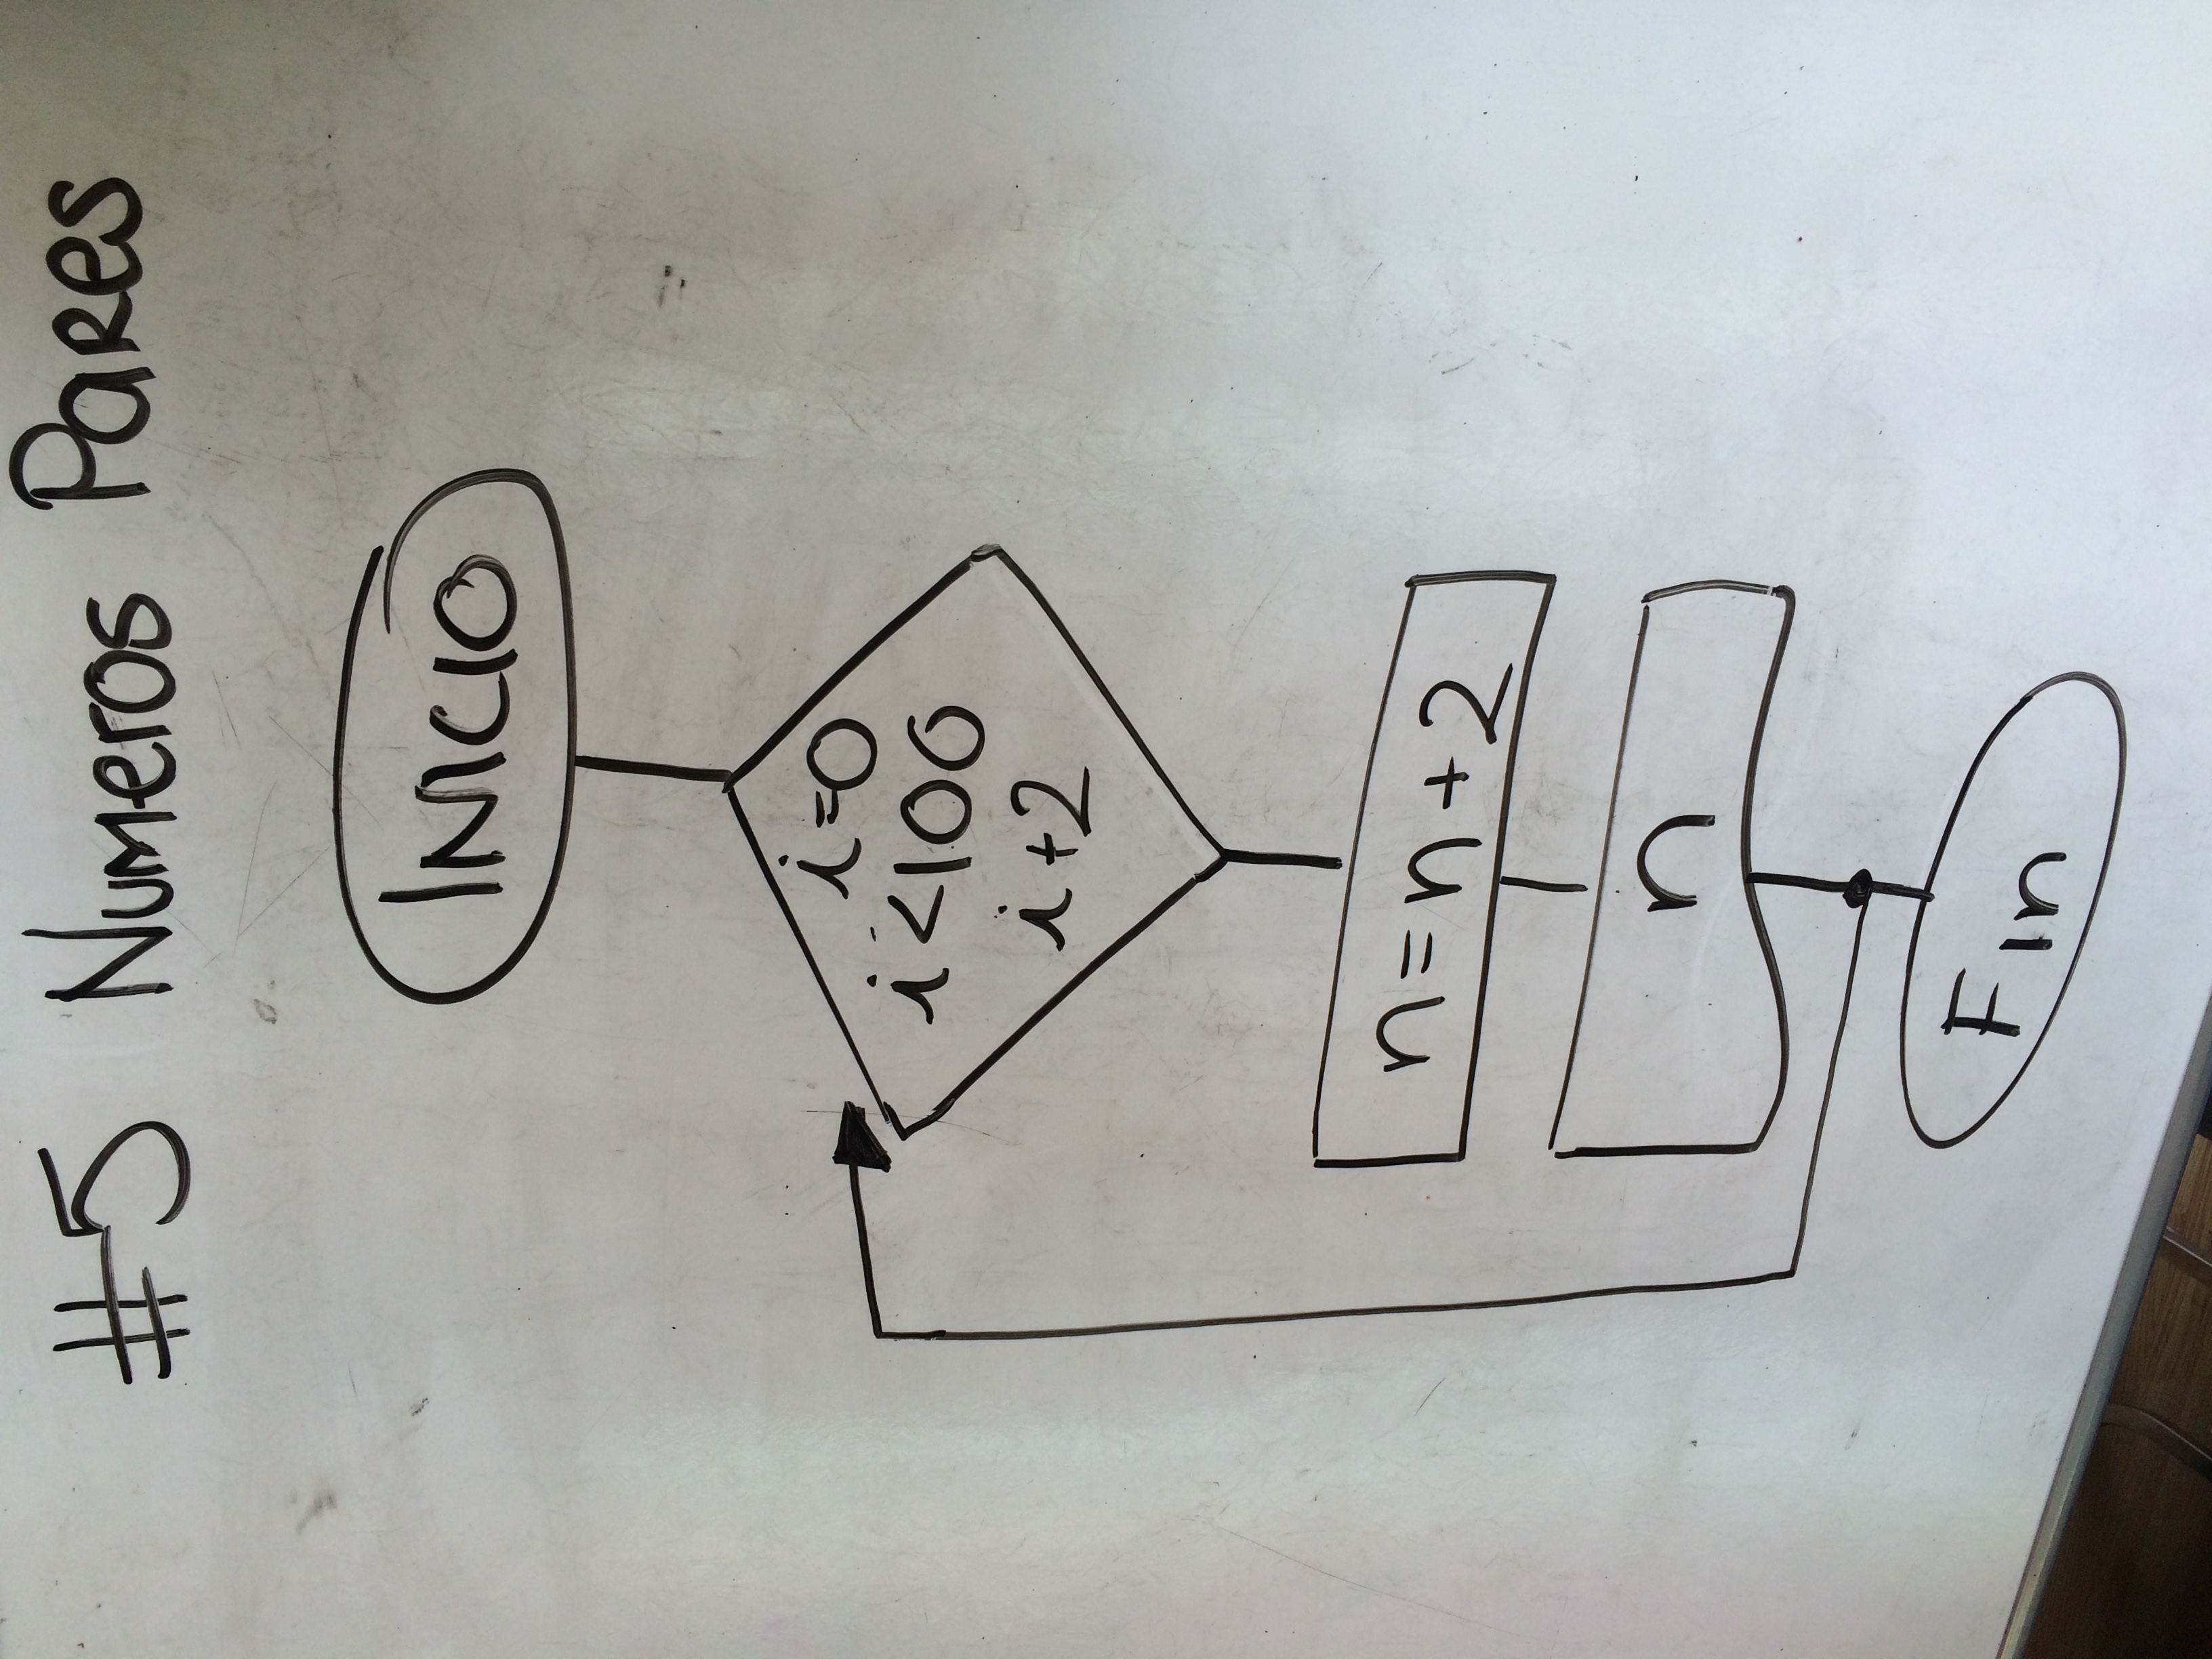 #5 Numeros Pares
INICIO
i=0
i<100
i+2
n=n+2
n
Fin